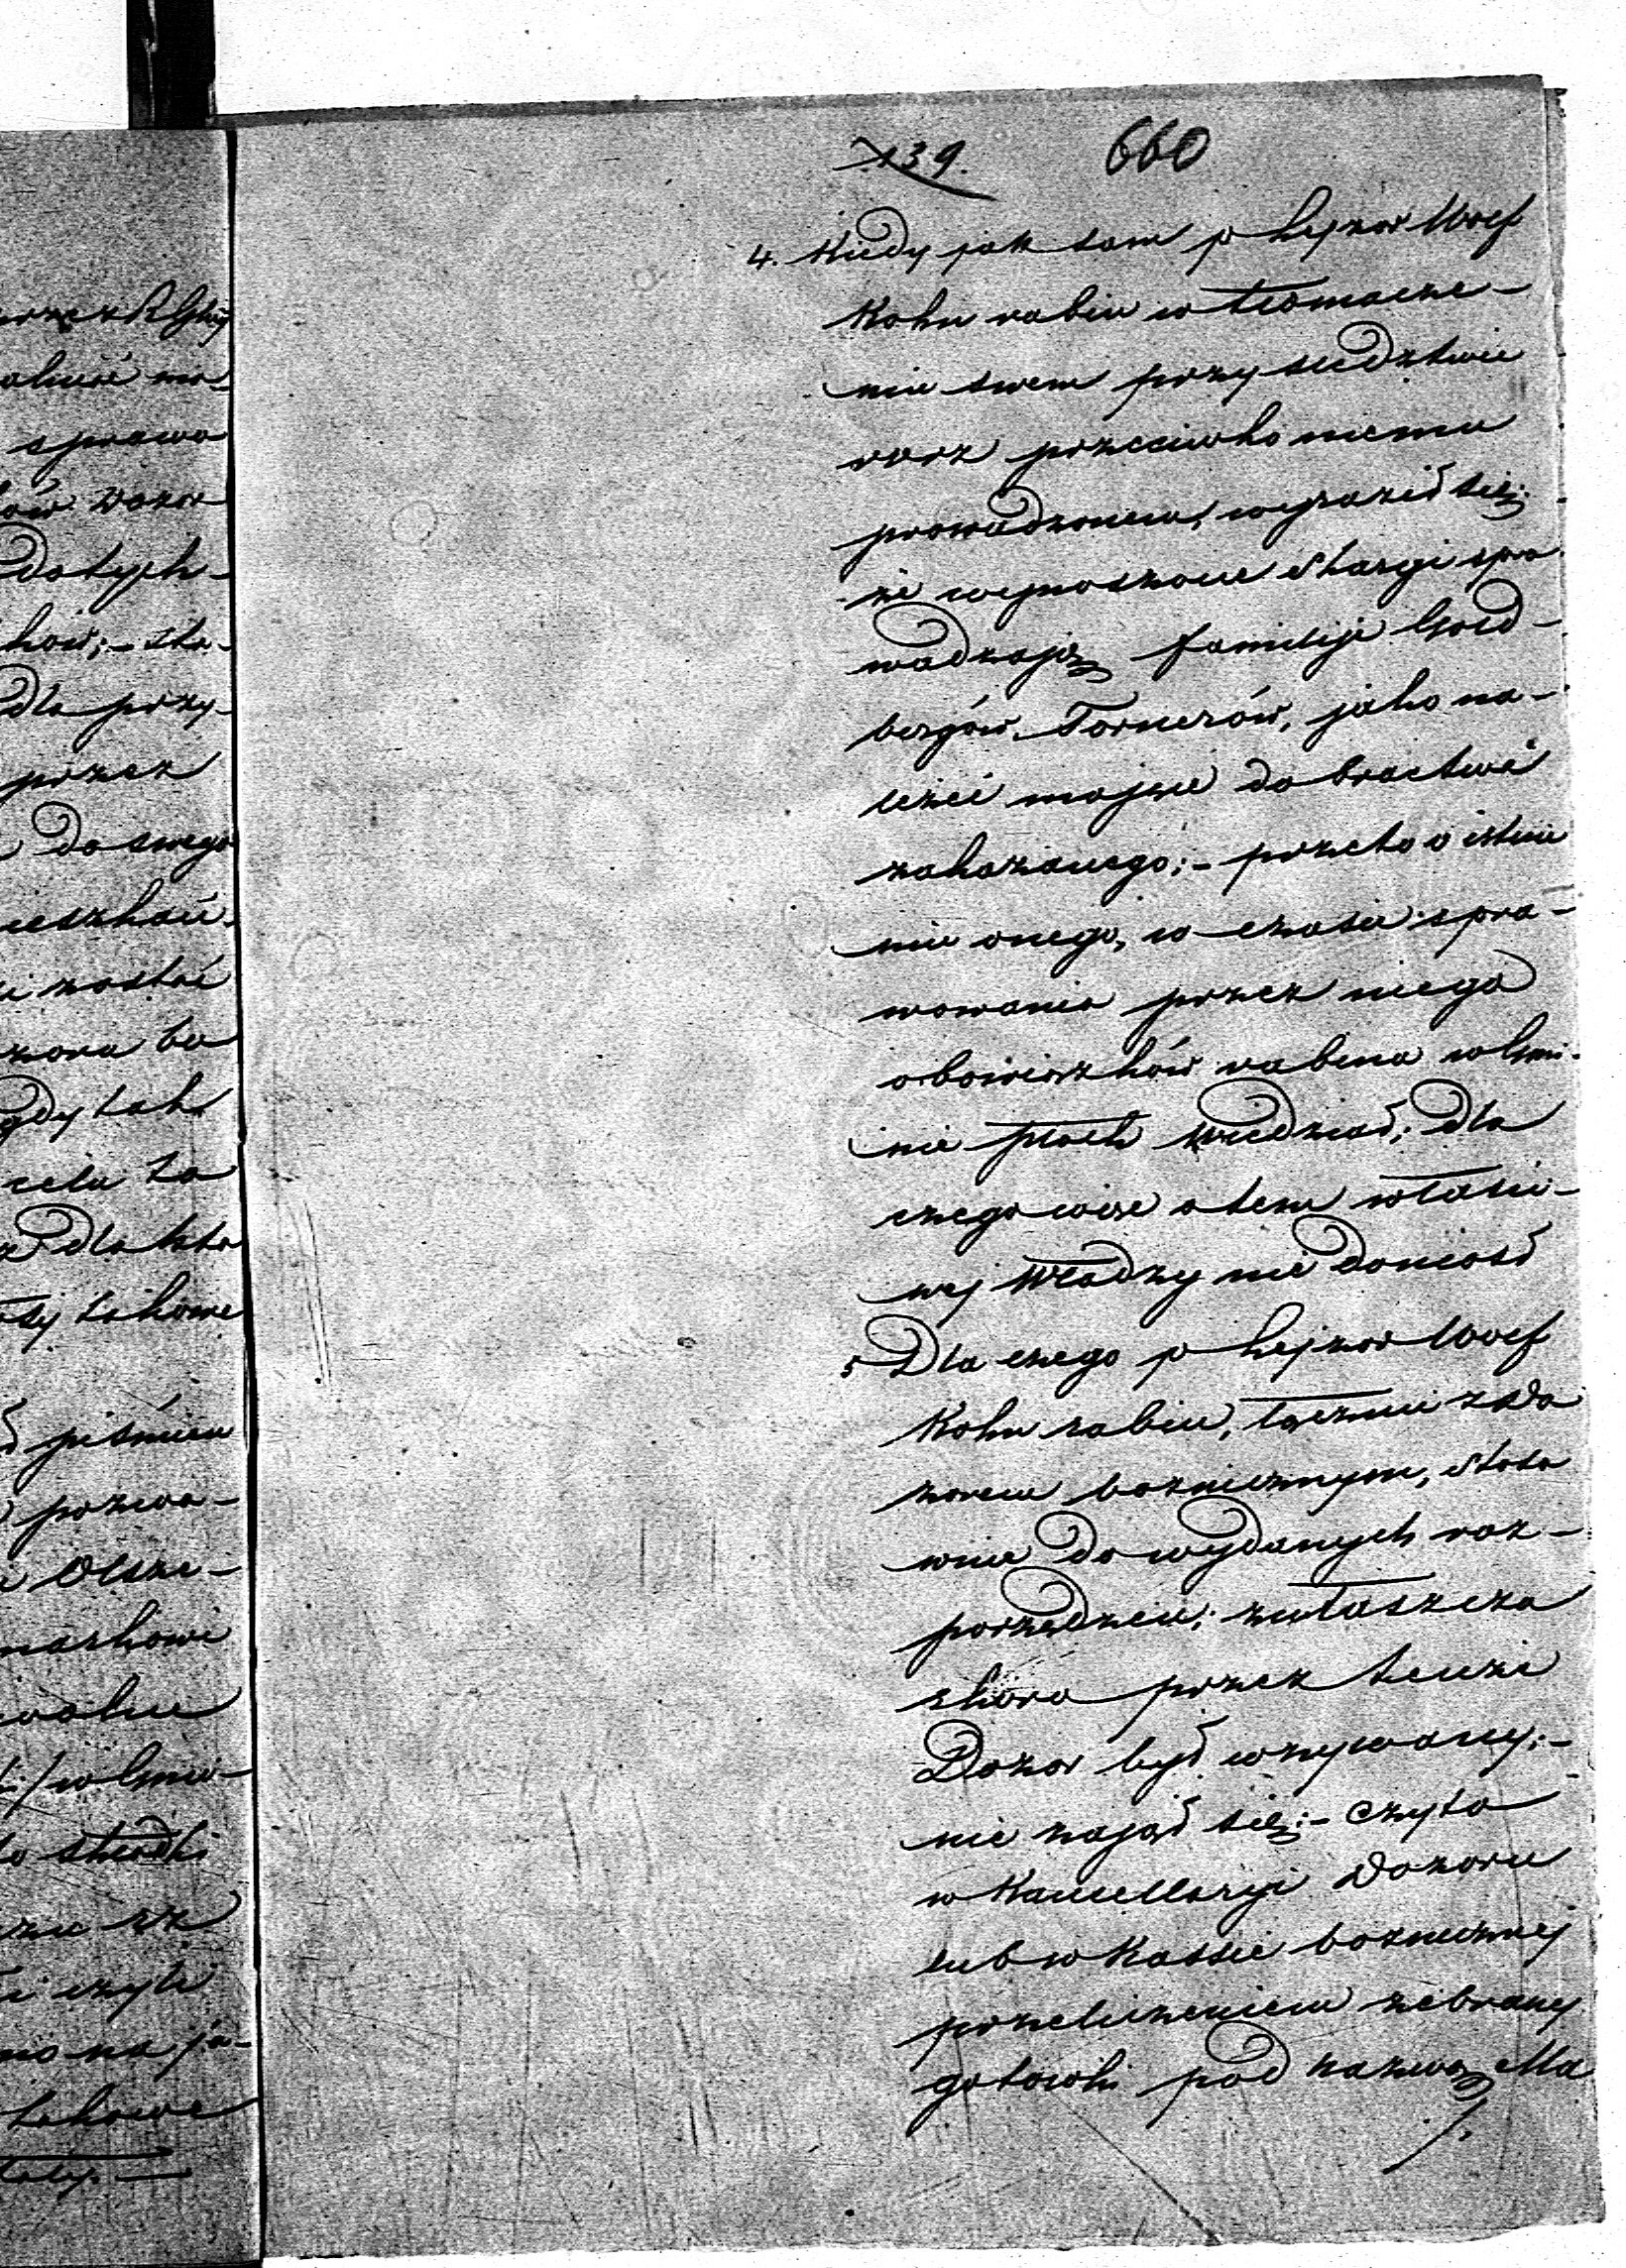 139. 660
4. Kiedy jak sam p Lejzor Wolf
Kohn rabin w tłomacze-
niu swem przy śledztwie
wraz przeciwko niemu
prowadzonem, wyraził się;
że wynoszone skargi spro-
wadzają familije Gold-
bergów, Tornerów, jako na-
leżeć mające do bractwa
zakazanego; - przeto o istnie
niu onego, w czasie spra-
wowania przez niego
obowiązków rabina w Gmi-
nie płock wiedział; dla
czego więc o tem właści-
wej Władzy nie doniosł
5 Dla czego p Lejzor Wolf
Kohn rabin, łącznie z Do
zorem bożnicznym, stoso
wnie do wydanych roz-
porządzeń; zwłaszcza
skoro przez tenże
Dozor był wzywany; -
nie zajął się; - czyto
w Kancellaryi Dozoru
lub w Kassie bożnicznej
przeliczeniem zebranej
gotowki pod nazwą Ma
/.
przez
sprawa
Dozor
dotych-
dla przy-
przez
do swego
zostać
gdy tak
celu ta
takowe
piśmien
pozwa-
Olsze-
w Gmin-
składki
czyli
takowe